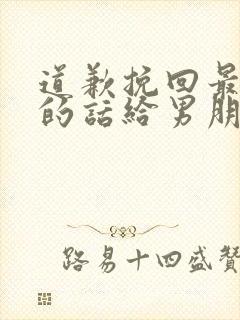 道歉挽回最
的話給男朋
路易十四盛贊